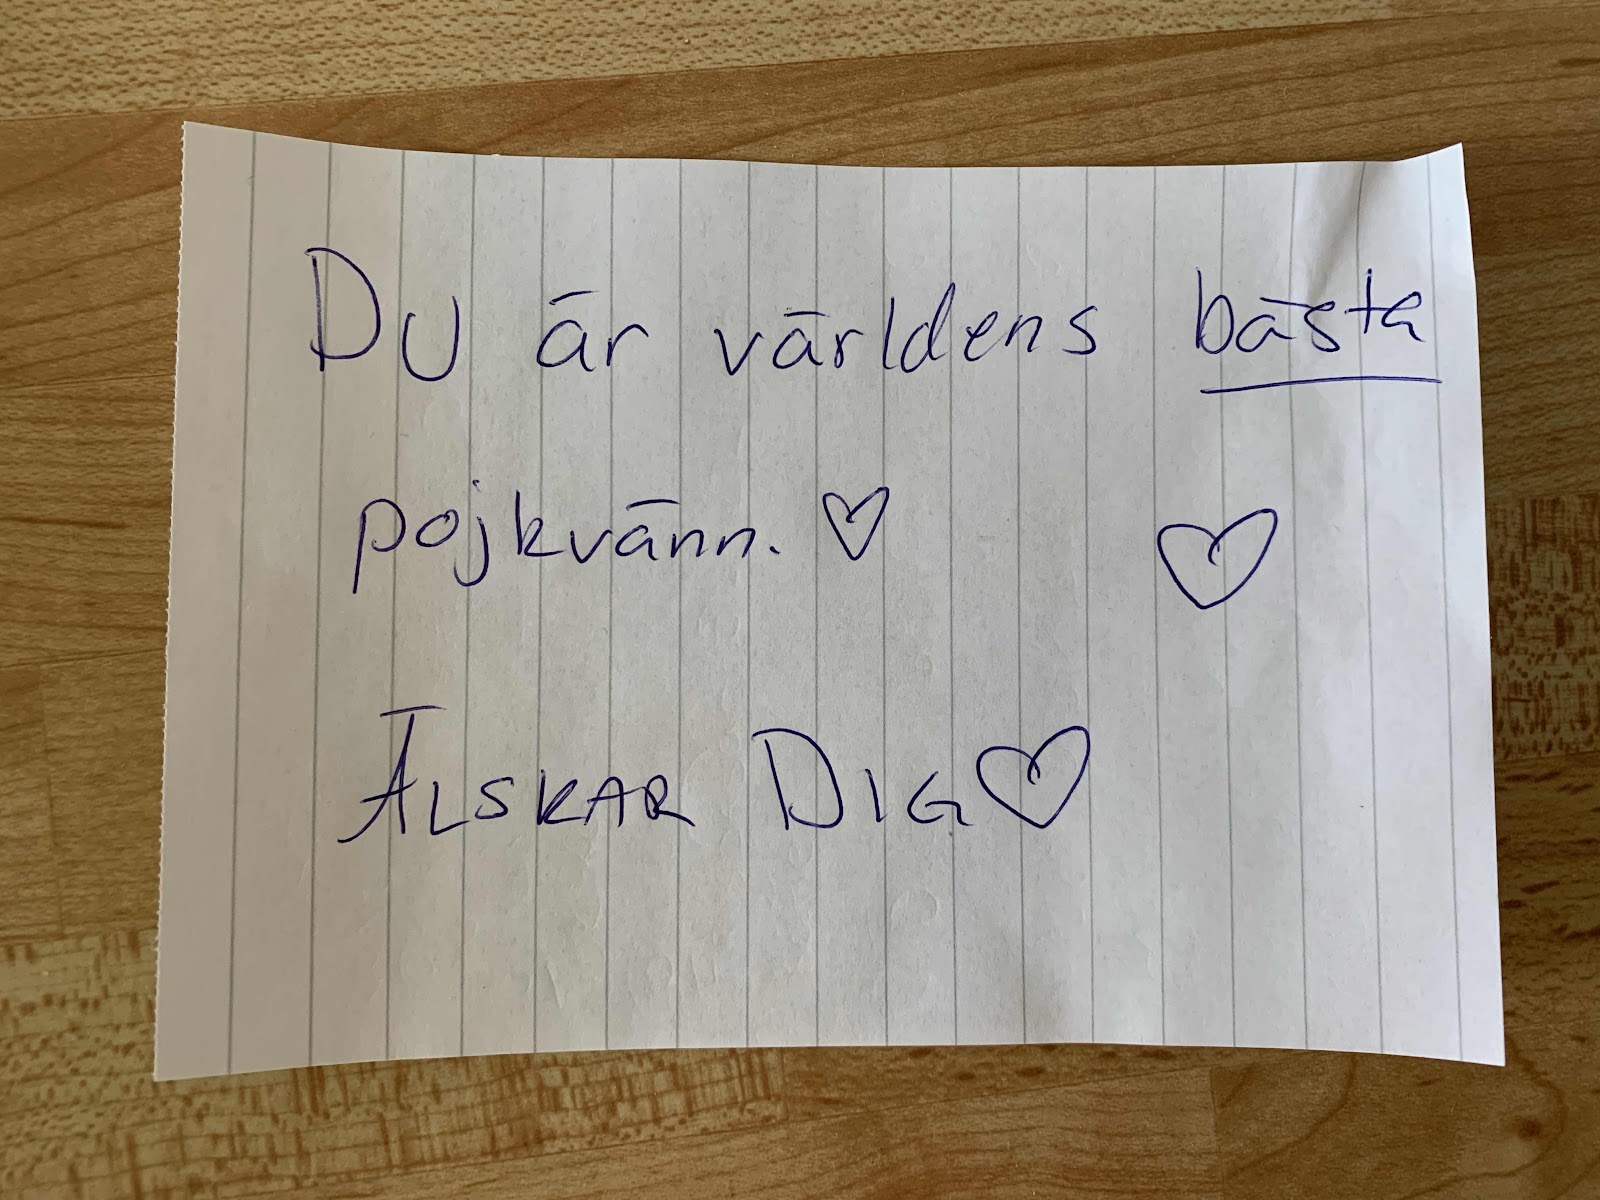 Du är världens bästa
pojkvänn. ♡ ♡
ÄLSKAR DIG♡